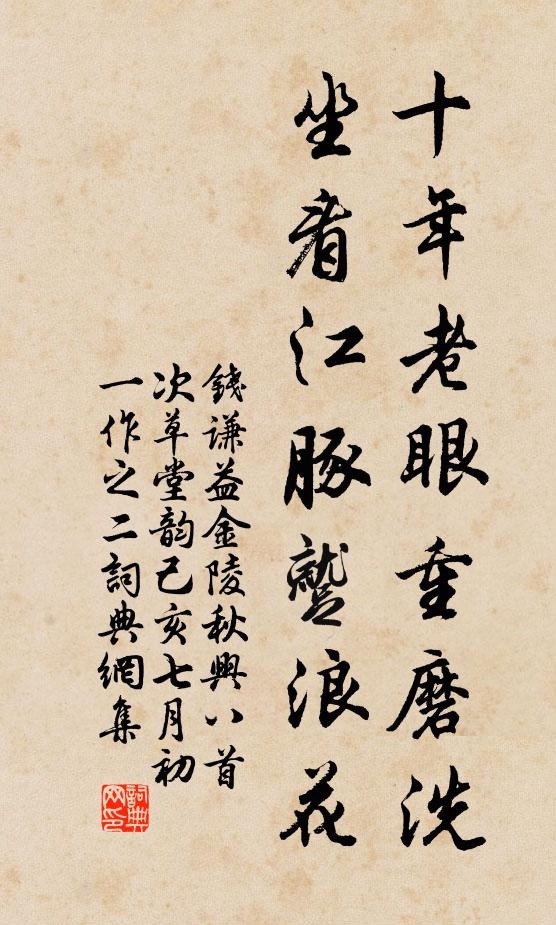 十年老眼重磨洗
坐看江豚蹵浪花
錢謙益金陵秋興八首
次草堂韵己亥七月初
一作之二詞典網集
詞典网印